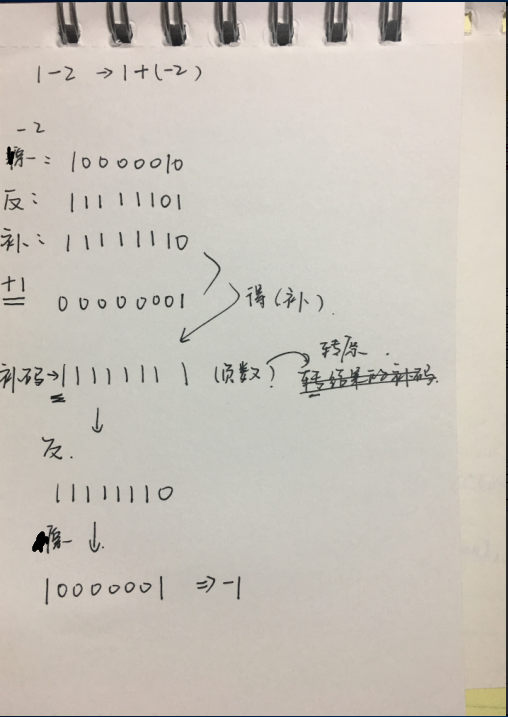 1-2 → 1+(-2)
-2
原: 10000010
反: 11111101
补: 11111110
+1 00000001
得(补).
转原.
补码→11111111 (负数)
反.
11111110
原 ↓
10000001 => -1